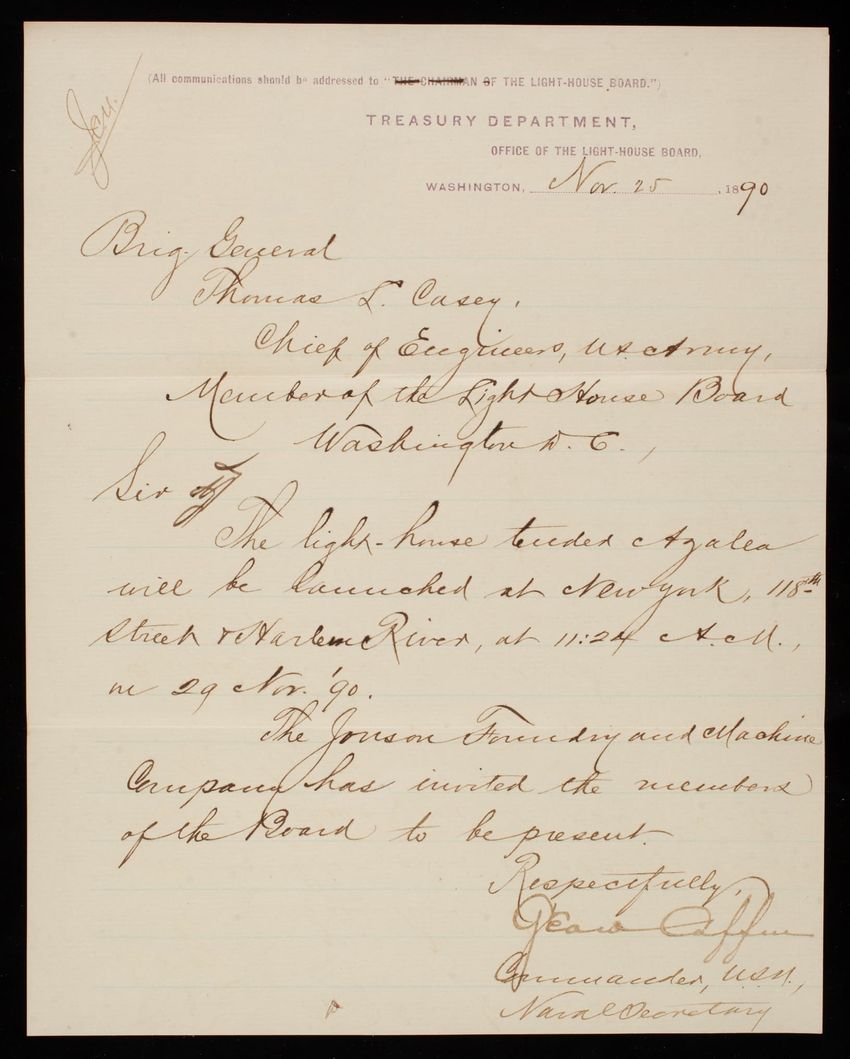 (All communications should be addressed to "THE CHAIRMAN OF THE LIGHT-HOUSE BOARD.")
TREASURY DEPARTMENT,
OFFICE OF THE LIGHT-HOUSE BOARD,
WASHINGTON, Nov. 25, 1890
Brig. General
Thomas L. Casey,
Chief of Engineers, U.S. Army,
Member of the Light House Board
Washington D. C.,
Sir
The light-house tender Azalea
will be launched at New York, 118th
Street & Harlem River, at 11:24 A.M.,
on 29 Nov. '90.
The Jonson Foundry and Machine
Company has invited the members
of the Board to be present.
Respectfully,
Geo W Coffin
Commander, U.S.N.,
Naval Secretary